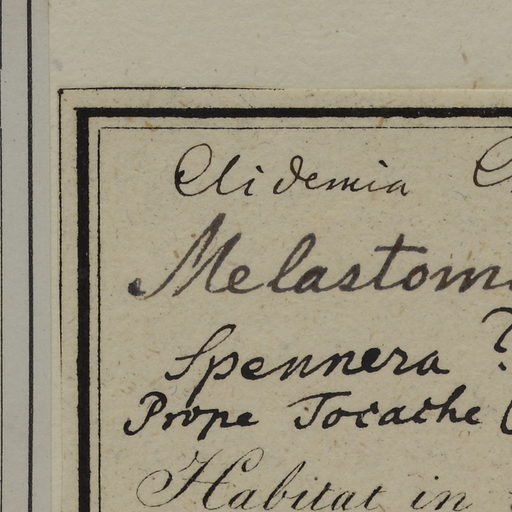 Clidemia
Melastom
Spennera ?
Prope Tocache (
Habitat in